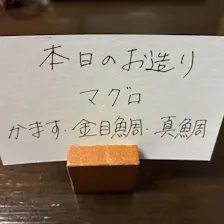 本日のお造り
マグロ
かます・金目鯛・真鯛